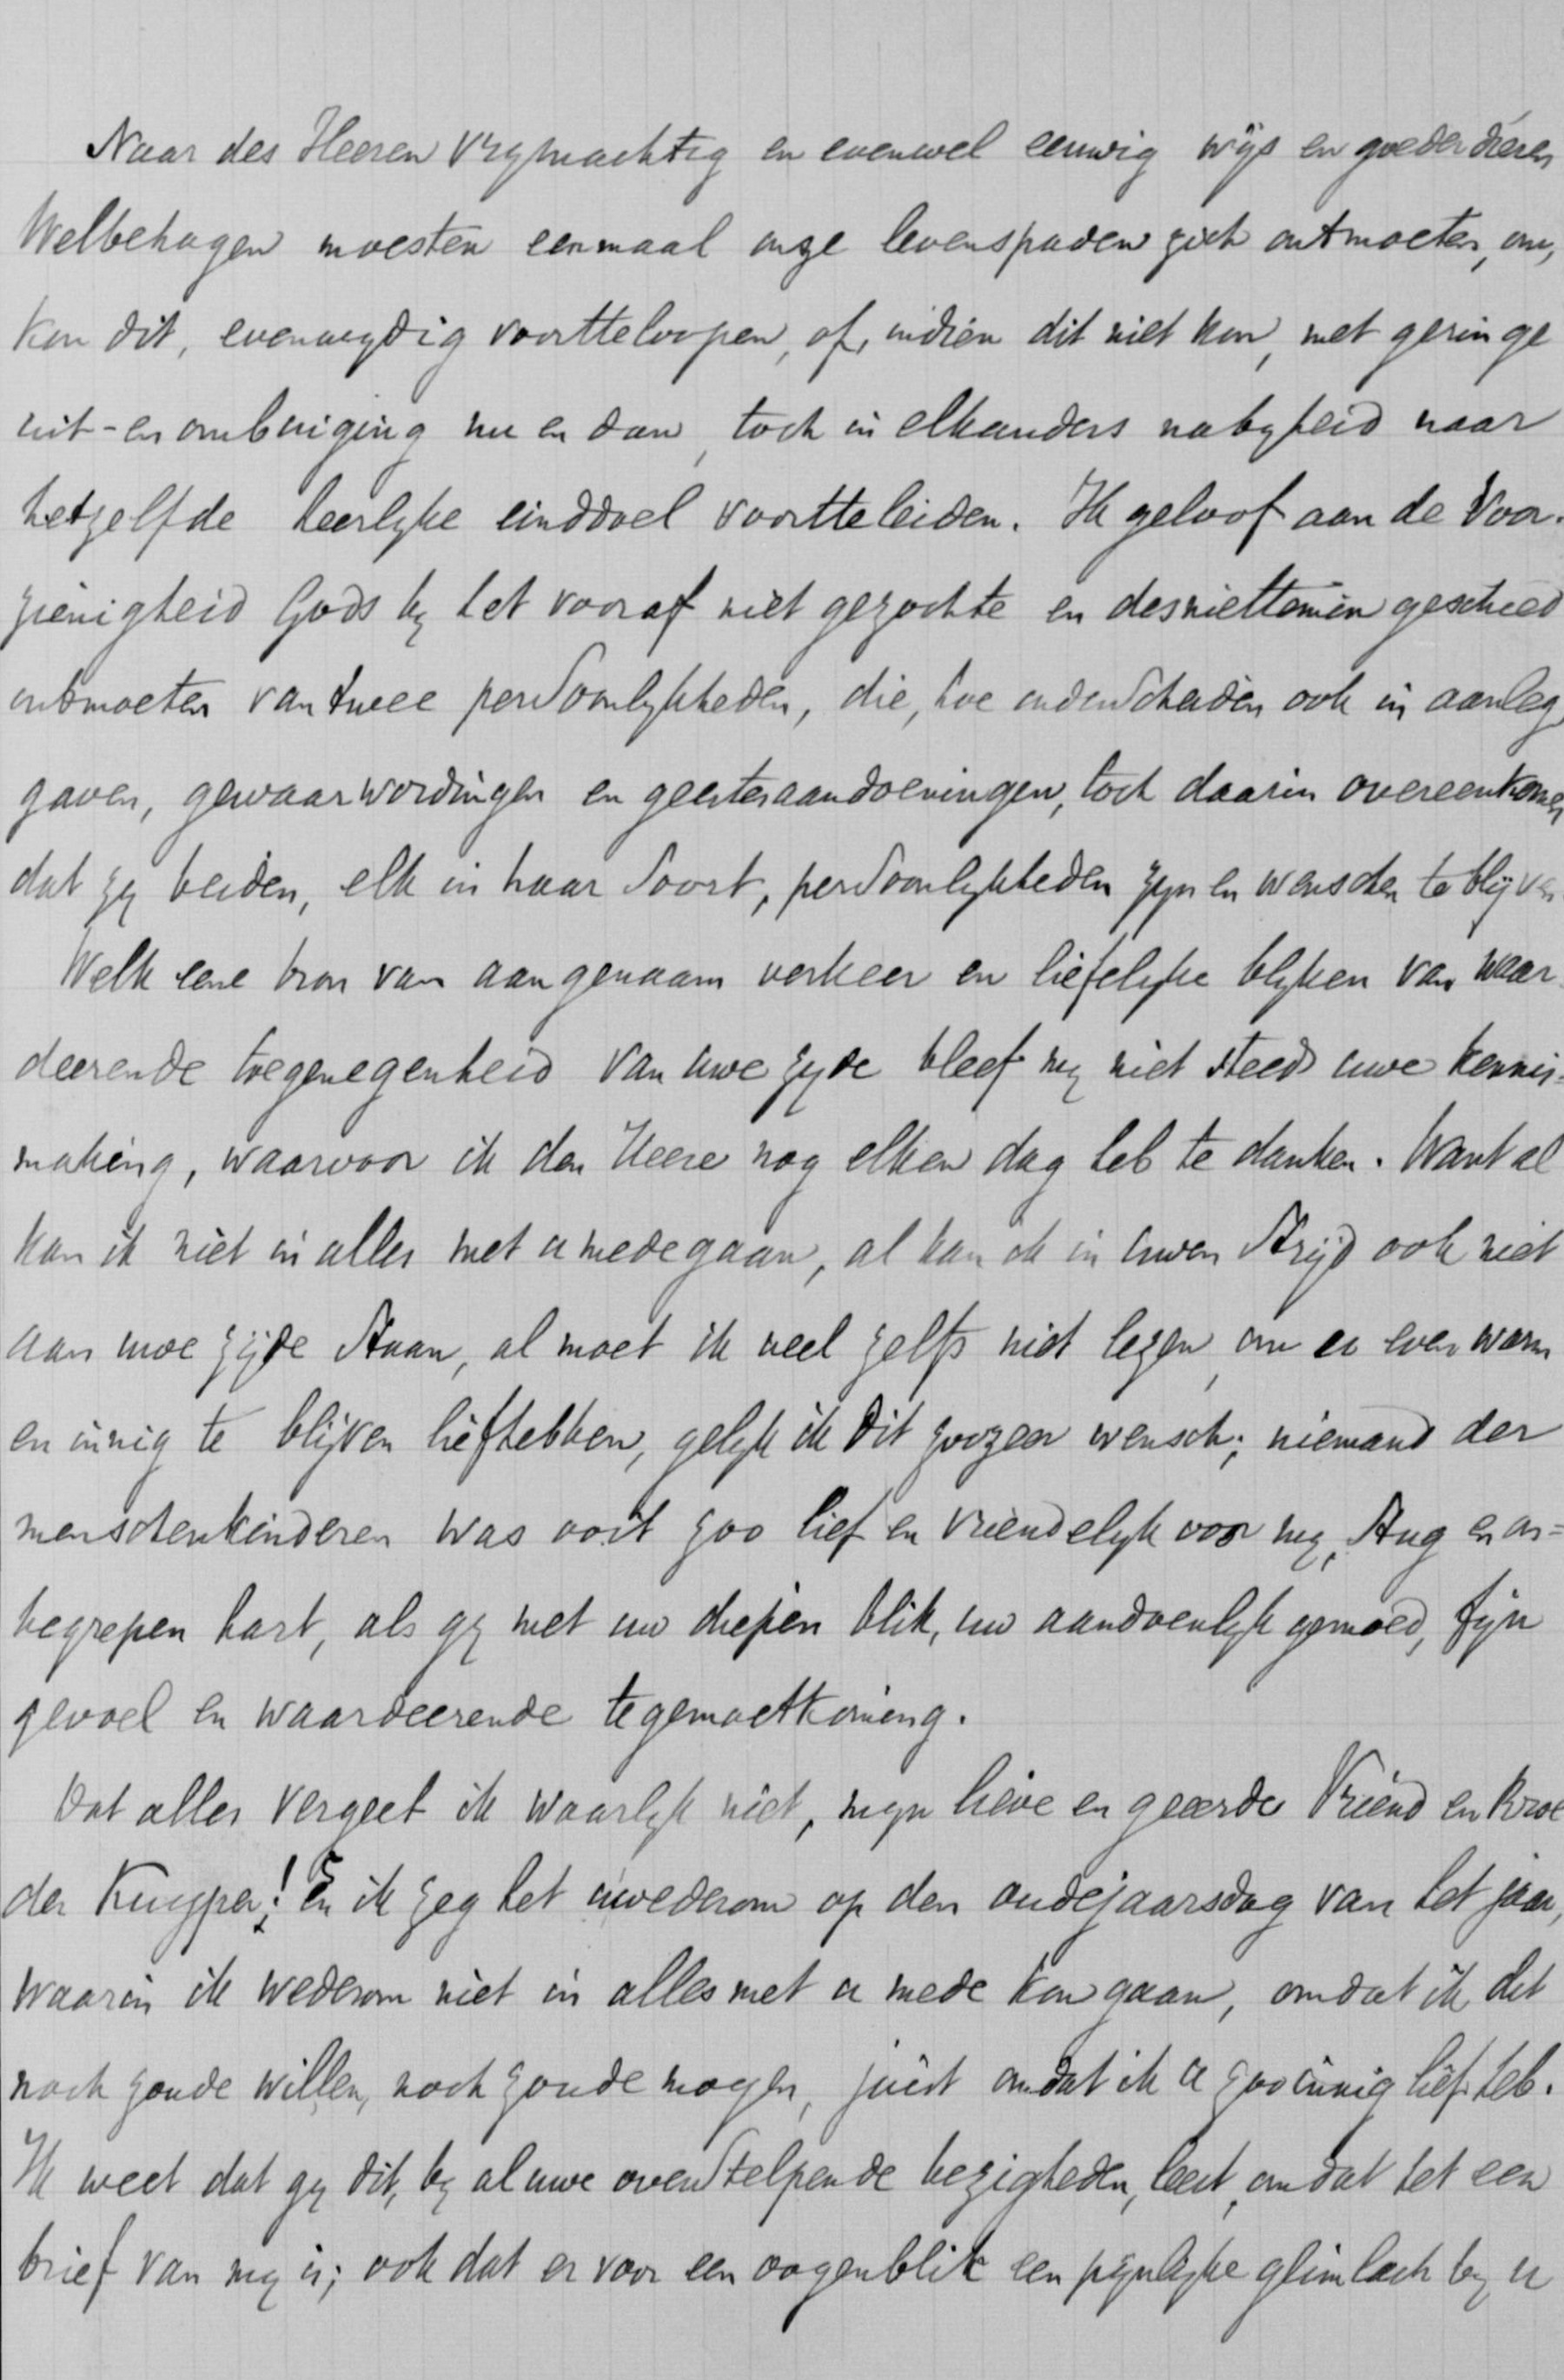 Naar des Heeren vrymachtig en evenwel eeuwig wijs en goedertieren
Welbehagen moesten eenmaal onze levenspaden zich ontmoeten, om,
kon dit, evenwydig voortteloopen, of, indien dit niet kon, met geringe
uit- en ombuiging nu en dan, toch in elkanders nabyheid naar
hetzelfde heerlyke einddoel voortteleiden. Ik geloof aan de Voor-
zienigheid Gods by het vooraf niet gezochte en desniettemin geschied
ontmoeten van twee persoonlykheden, die, hoe onderscheiden ook in aanleg
gaven, gewaarwordingen en geestesaandoeningen, toch daarin overeenkomen,
dat zy beiden, elk in haar soort, persoonlykheden zyn en wenschen te blyven.
Welk eene bron van aangenaam verkeer en liefelyke blyken van waar-
deerende toegenegenheid van uwe zyde bleef my niet steeds uwe kennis=
making, waarvoor ik den Heere nog elken dag heb te danken. Want al
kan ik niet in alles met u medegaan, al kan ik in uwen strijd ook niet
aan uwe zijde staan, al moet ik veel zelfs niet lezen, om u even warm
en innig te blijven liefhebben, gelyk ik dit zoozeer wensch; niemand der
menschenkinderen was ooit zoo lief en vriendelyk voor my, stug en on=
begrepen hart, als gy met uw diepen blik, uw aandoenlyk gemoed, fyn
gevoel en waardeerende tegemoetkoming.
Dat alles vergeet ik waarlyk niet, myn lieve en geëerde Vriend en Broe
der Kuyper! En ik zeg het u wederom op den oudejaarsdag van het jaar,
waarin ik wederom niet in alles met u mede kon gaan, omdat ik dit
noch zoude willen, noch zoude mogen, juist omdat ik u zoo innig lief heb.
Ik weet dat gy dit, by al uwe overstelpende bezigheden, leest, omdat het een
brief van my is; ook dat er voor een oogenblik een pynlyke glimlach by u